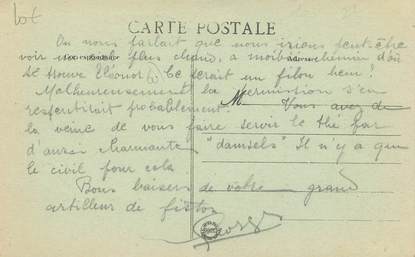 Lot
CARTE POSTALE
On nous parlait que nous irions peut-être
voir un pays plus chaud, à moitié chemin d'où
se trouve Eléonor. Ce serait un filon hein!
Malheureusement la permission s'en
ressentirait probablement. Vous avez de
la veine de vous faire servir le thé par
d'aussi charmantes "damsels" Il n'y a que
le civil pour cela
Bons baisers de votre grand
artilleur de fiston
Georges